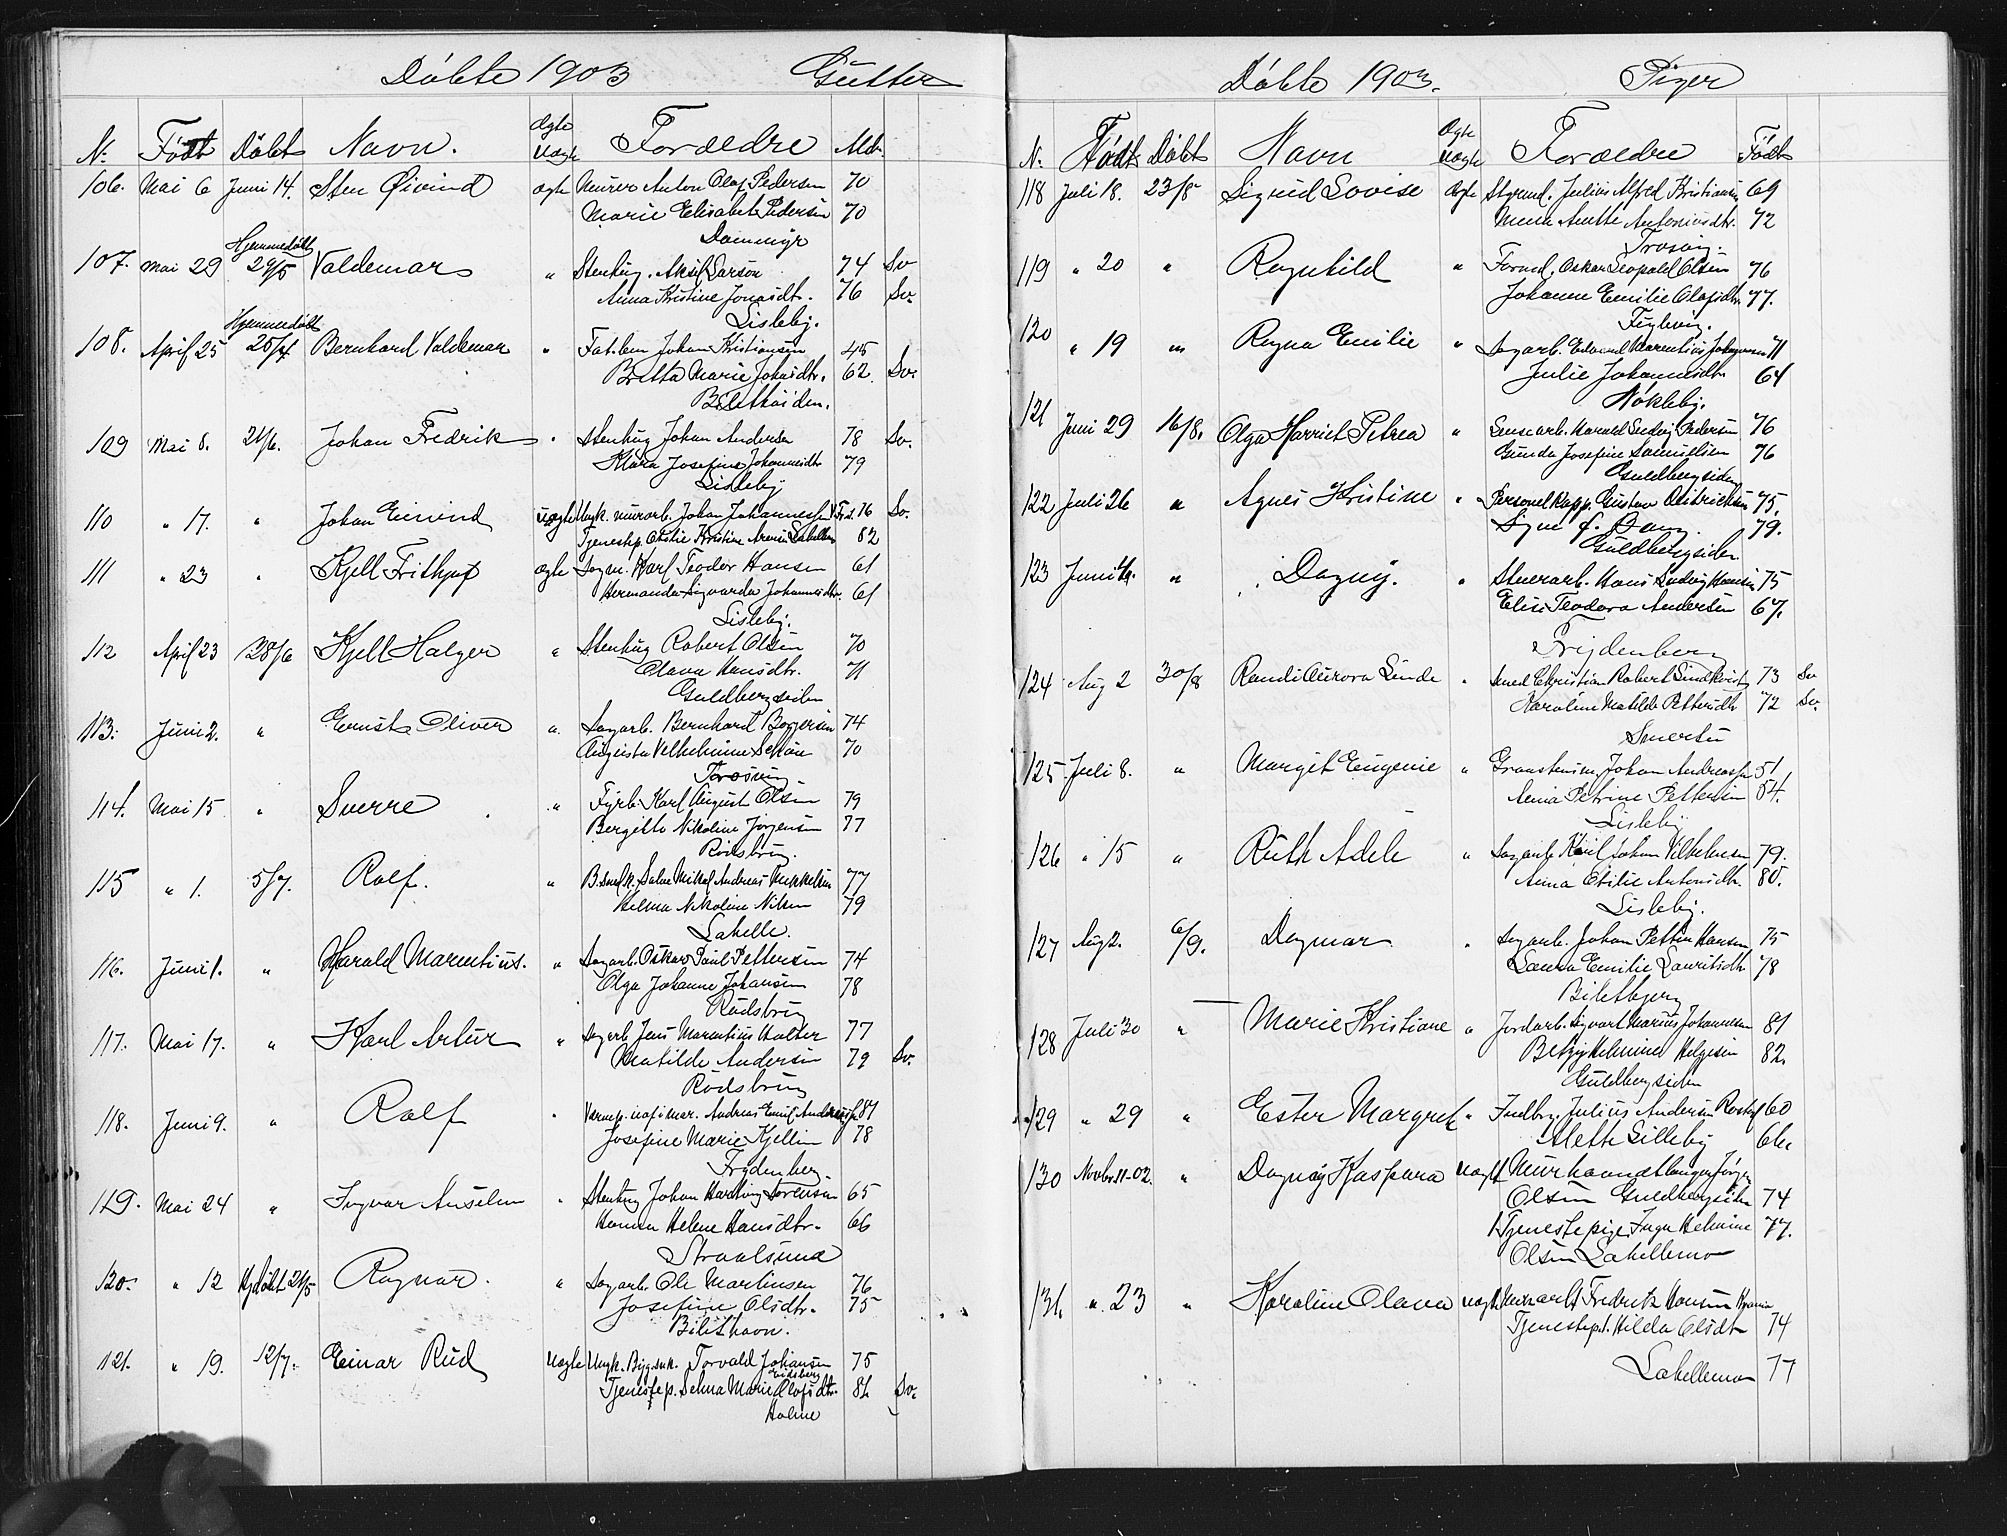 Døbte 1903 Gutter
N. Født Døbt Navn. Ægte Uægte Forældre
106. Mai 6 Juni 14. Sten Øivind ægte Murer Anton Olaf Pedersen 70
Marie Elisabeth Pedersen 70
Dammyr
Hjemmedøbt
107. Mai 29 29/5 Valdemar " Stenhug. Aksel Larson 74 Sv
Anna Kristine Jonasdtr. 76 Sv.
Lisleby.
Hjemmedøbt
108. April 25 25/4 Bernhard Valdemar " Fat.lem Johan Kristiansen 45
Britta Marie Johnsdtr. 62. Sv.
109 Mai 8. 21/6. Johan Fredrik " Stenhug Johan Andersen 78 Sv.
Klara Josefine Johannesdtr 79
Lisleby
110 " 17. " Johan Eivind uægte Ungk. murarb. Johan Johannessen 76 Sv.
Tjenestep. Kristine 82
111 " 23 " Kjell Frithjof ægte Sagm. Karl Teodor Hansen 61
Hermanda Sigvarda Johannesdtr. 61
Lisleby.
112 April 23 28/6 Kjell Holger " Stenhug Robert Olsen 70
Olava Hansdtr. 71
Guldbergsiden
113. Juni 2. " Ernst Oliver " Sagarb. Bernhard Borgersen 74
Augusta Vilhelmine 70
Trosvig
114. Mai 15 " Sverre " Fyrb. Karl August Olsen 79
Bergitte Nikoline Jørgensen 77
Rødsbrug.
115 " 1. 5/7. Rolf. " Mikal Andreas Mikkelsen 77
Helma Nikoline Nilsen 79
Lahelle.
116. Juni 1. " Harald Marentius. " Sagarb. Oskar Paul Pettersen 74
Olga Johanne Johansen 78
Rødsbrug
117. Mai 17. " Karl Artur " Sagarb Jens Marentius Halter 77
Matilde Andersen 79 Sv.
Rødsbrug
118. Juni 9. " Rolf " Andreas Emil Andersen 81
Josefine Marie Kjellin 78
Frydenberg
119. Mai 24 " Ingvar Anselm " Stenhug Johan Hartvig Sørensen 65
Hanna Helene Hansdtr. 66
Straalsund
120. " 12 Hjdøbt 21/5 Ragnar. " Sagarb. Ole Martinsen 76
Josefine Olsdtr. 75
Bilithavn.
121. " 19. 12/7. Einar Rud uægte Ungk. Torvald Johansen 75
Eidsberg
Tjenestep. Selma Marie Olofsdtr. 82 Sv.
Holme
Døbte 1903. Piger
N. Født Døbt Navn Ægte Uægte Forældre Født
118 Juli 18. 23/8 Sigrid Lovise Ægte Styrmd. Julius Alfred Kristiansen 69
Anette Antoniusdtr. 72
Trosvig.
119 " 20 " Ragnhild " Formd. Oskar Leopold Olsen 76
Johanne Emilie Olafsdtr. 77.
120 " 19 " Ragna Emilie " Sagarb. Edvard Marentius Johannesen 71
Julie Johannesdtr 64
Nøkleby.
121 Juni 29 16/8. Olga Harriet Petrea " Harald Ludvig Pedersen 76
Gunda Josefine Samuelsen 76
Guldbergsiden
122 Juli 26 " Agnes Kristine " Gustav 75.
Signe f. Bang 79.
Guldbergsiden
123 Juni " Dagny. " Hans Ludvig Hansen 75
Elise Teodora Andersen 67.
Frydenberg
124 Aug 2 30/8 Randi Aurora Linde " Smed Christian Robert Lindkvist 73 Sv
Karoline Matilde Pettersdtr 72 Sv.
125 Juli 8. " Margit Eugenie " Johan Andreassen 51
Anna Petrine Pettersen 54.
Lisleby
126 " 15 " Ruth Adele " Sagarb Karl Johan Vilhelmsen 79.
Anna Otilie Antonsdtr. 80.
Lisleby.
127 Aug 2. 6/9. Dagmar " Sagarb. Johan Petter Hansen 75
Laura Emilie Lauritsdtr 78
Bilitbjerg
128 Juli 30 " Marie Kristiane " Jordarb. Sigvart Marius Johannesen 81
Betzy Helmine Helgesen 82.
Guldbergsiden
129 " 29 " Ester Margret " Julius Andersen 60
Mette Lilleby
130 Novbr. 11-02. " Dagny Kaspara uægte Murhaandtlanger Jørgen
Olsen Guldbergsiden 74
Tjenestepige Inga Helmine 77.
Olsen Lahellemo
131. " 23 " Karoline Olava uægte Fredrik Hansen
Tjenestep. Hilda Olsdtr 74
Lahellemo 77